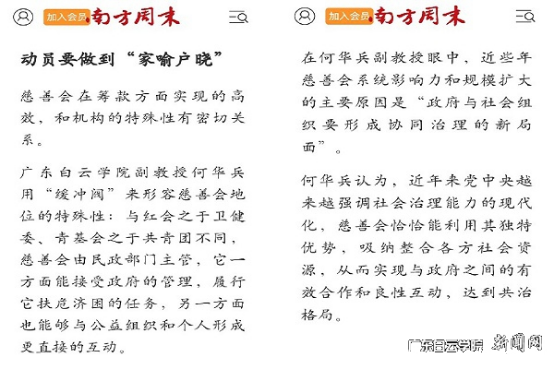 加入会员 南方周末
动员要做到“家喻户晓”
慈善会在筹款方面实现的高
效，和机构的特殊性有密切关
系。
广东白云学院副教授何华兵
用“缓冲阀”来形容慈善会地
位的特殊性：与红会之于卫健
委、青基会之于共青团不同，
慈善会由民政部门主管，它一
方面能接受政府的管理，履行
它扶危济困的任务，另一方面
也能够与公益组织和个人形成
更直接的互动。
加入会员 南方周末
在何华兵副教授眼中，近些年
慈善会系统影响力和规模扩大
的主要原因是“政府与社会组
织要形成协同治理的新局
面”。
何华兵认为，近年来党中央越
来越强调社会治理能力的现代
化，慈善会恰恰能利用其独特
优势，吸纳整合各方社会资
源，从而实现与政府之间的有
效合作和良性互动，达到共治
格局。
广东白云学院 新闻网